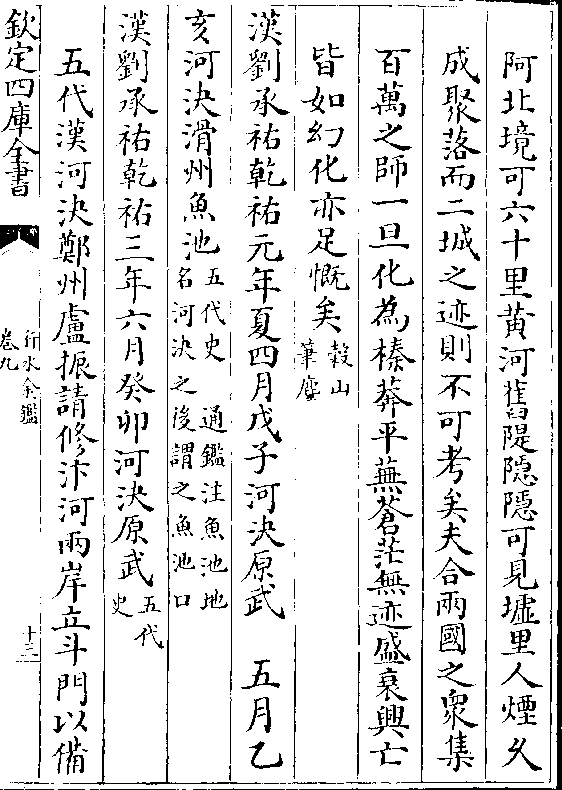 阿北境可六十里黄河舊隄隱隱可見墟里人煙久
成聚落而二城之迹則不可考矣夫合兩國之衆集
百萬之師一旦化為榛莽平蕪蒼茫無迹盛衰興亡
皆如幻化亦足慨矣穀山筆麈
漢劉承祐乾祐元年夏四月戊子河決原武　五月乙
亥河決滑州魚池五代史　通鑑注魚池地名河決之後謂之魚池口
漢劉承祐乾祐三年六月癸卯河決原武五代史
五代漢河決鄭州盧振請修汴河兩岸立斗門以備
欽定四庫全書
行水金鑑
卷九
十三